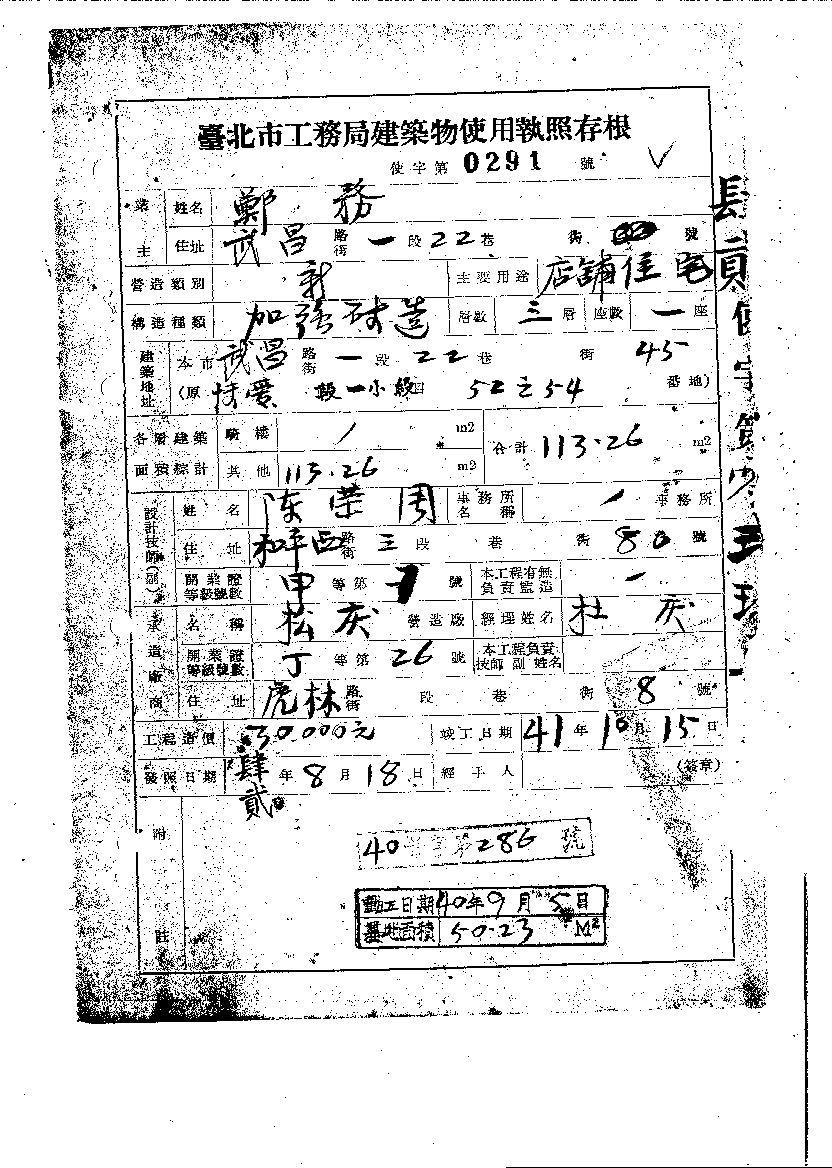 臺北市工務局建築物使用執照存根
使字第 0291 號
業主 姓名 鄭 務
住址 武昌 路街 一 段 22 巷 街 號
營造類別 新 主要用途 店舖住宅
構造種類 加強磚造 層數 三 層 座數 一 座
建築地址 本市 武昌 路街 一 段 22 巷 街 45
(原 段一小段 52之54 番地)
各層建築面積綜計 騎樓 / m2 合計 113.26 m2
其他 113.26 m2
設計技師(副) 姓名 陳榮周 事務所名稱 / 事務所
住址 和平西 路街 三 段 巷 街 80 號
開業證等級號數 甲 等第 號 本工程有無負責監造 /
承造廠商 名稱 松庆 營造廠 經理姓名 杜 庆
開業證等級號數 丁 等第 26 號 本工程負責技師副姓名
住址 虎林 路街 段 巷 街 8 號
工程造價 30.000元 竣工日期 41 年 10 月 15 日
發照日期 肆貳 年 8 月 18 日 經手人 (簽章)
附註
40 字第286 號
動工日期 40年9月5日
基地面積 50.23 M2